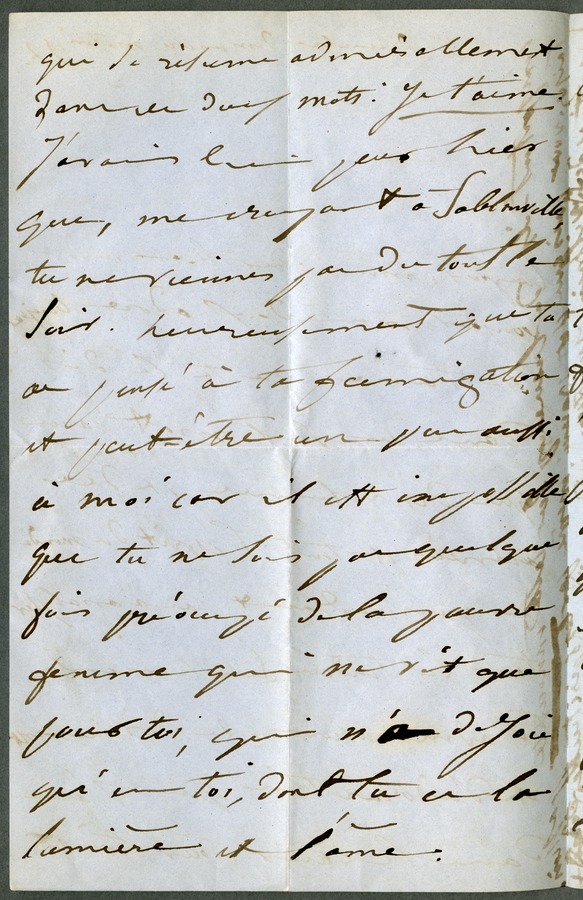 qui se résume admirablement
dans ces deux mots : Je t'aime.
J'avais bien peur hier
que, me croyant à Sablonville,
tu ne viennes pas du tout le
soir. heureusement que tu
as pensé à ta fumigation
et peut-être un peu aussi
à moi car il est impossible
que tu ne sois pas quelque
fois préoccupé de la pauvre
femme qui ne vit que
pour toi, qui n'a de joie
qu'en toi, dont tu es la
lumière et l'âme.